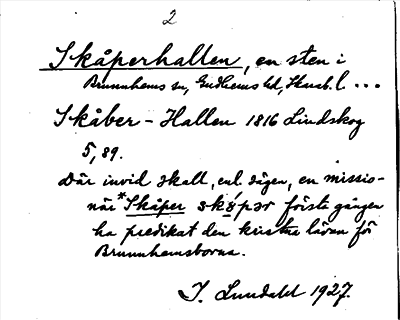 2
Skåperhallen, en sten i
Brunnhems sn, Gudhems hd, Skarab. l ...
Skåber - Hallen 1816 Lindskog
5, 89.
Där invid skall, enl. sägen, en missio-
när *Skåper skǻpər förste gången
ha predikat den kristna läran för
Brunnhemsborna.
J. Lundahl 1927.